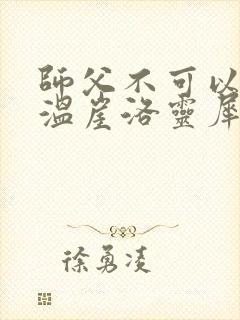 師父不可以
溫崖洛靈犀
徐勇凌